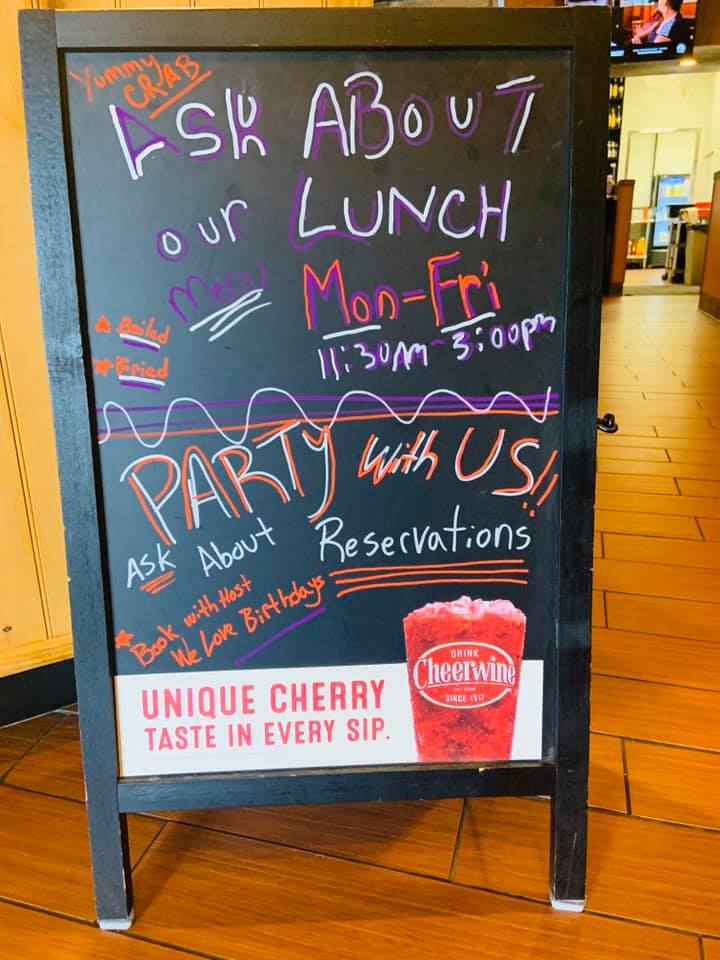 Yummy
CRAB
ASK ABOUT
our LUNCH
Menu Mon-Fri
11:30AM - 3:00pm
Boiled
Fried
PARTY with US!!
ASK About Reservations
Book with Host
We Love Birthdays
DRINK
Cheerwine
SINCE 1917
UNIQUE CHERRY
TASTE IN EVERY SIP.